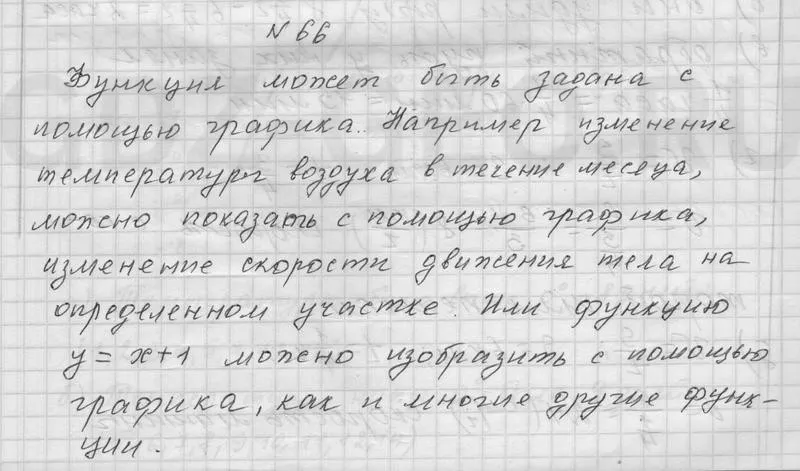 № 66
Функция может быть задана с
помощью графика. Например изменение
температуры воздуха в течение месеца,
можно показать с помощью графика,
изменение скорости движения тела на
определенном участке. Или функцию
y = x+1 можно изобразить с помощью
графика, как и многие другие функ-
ции.